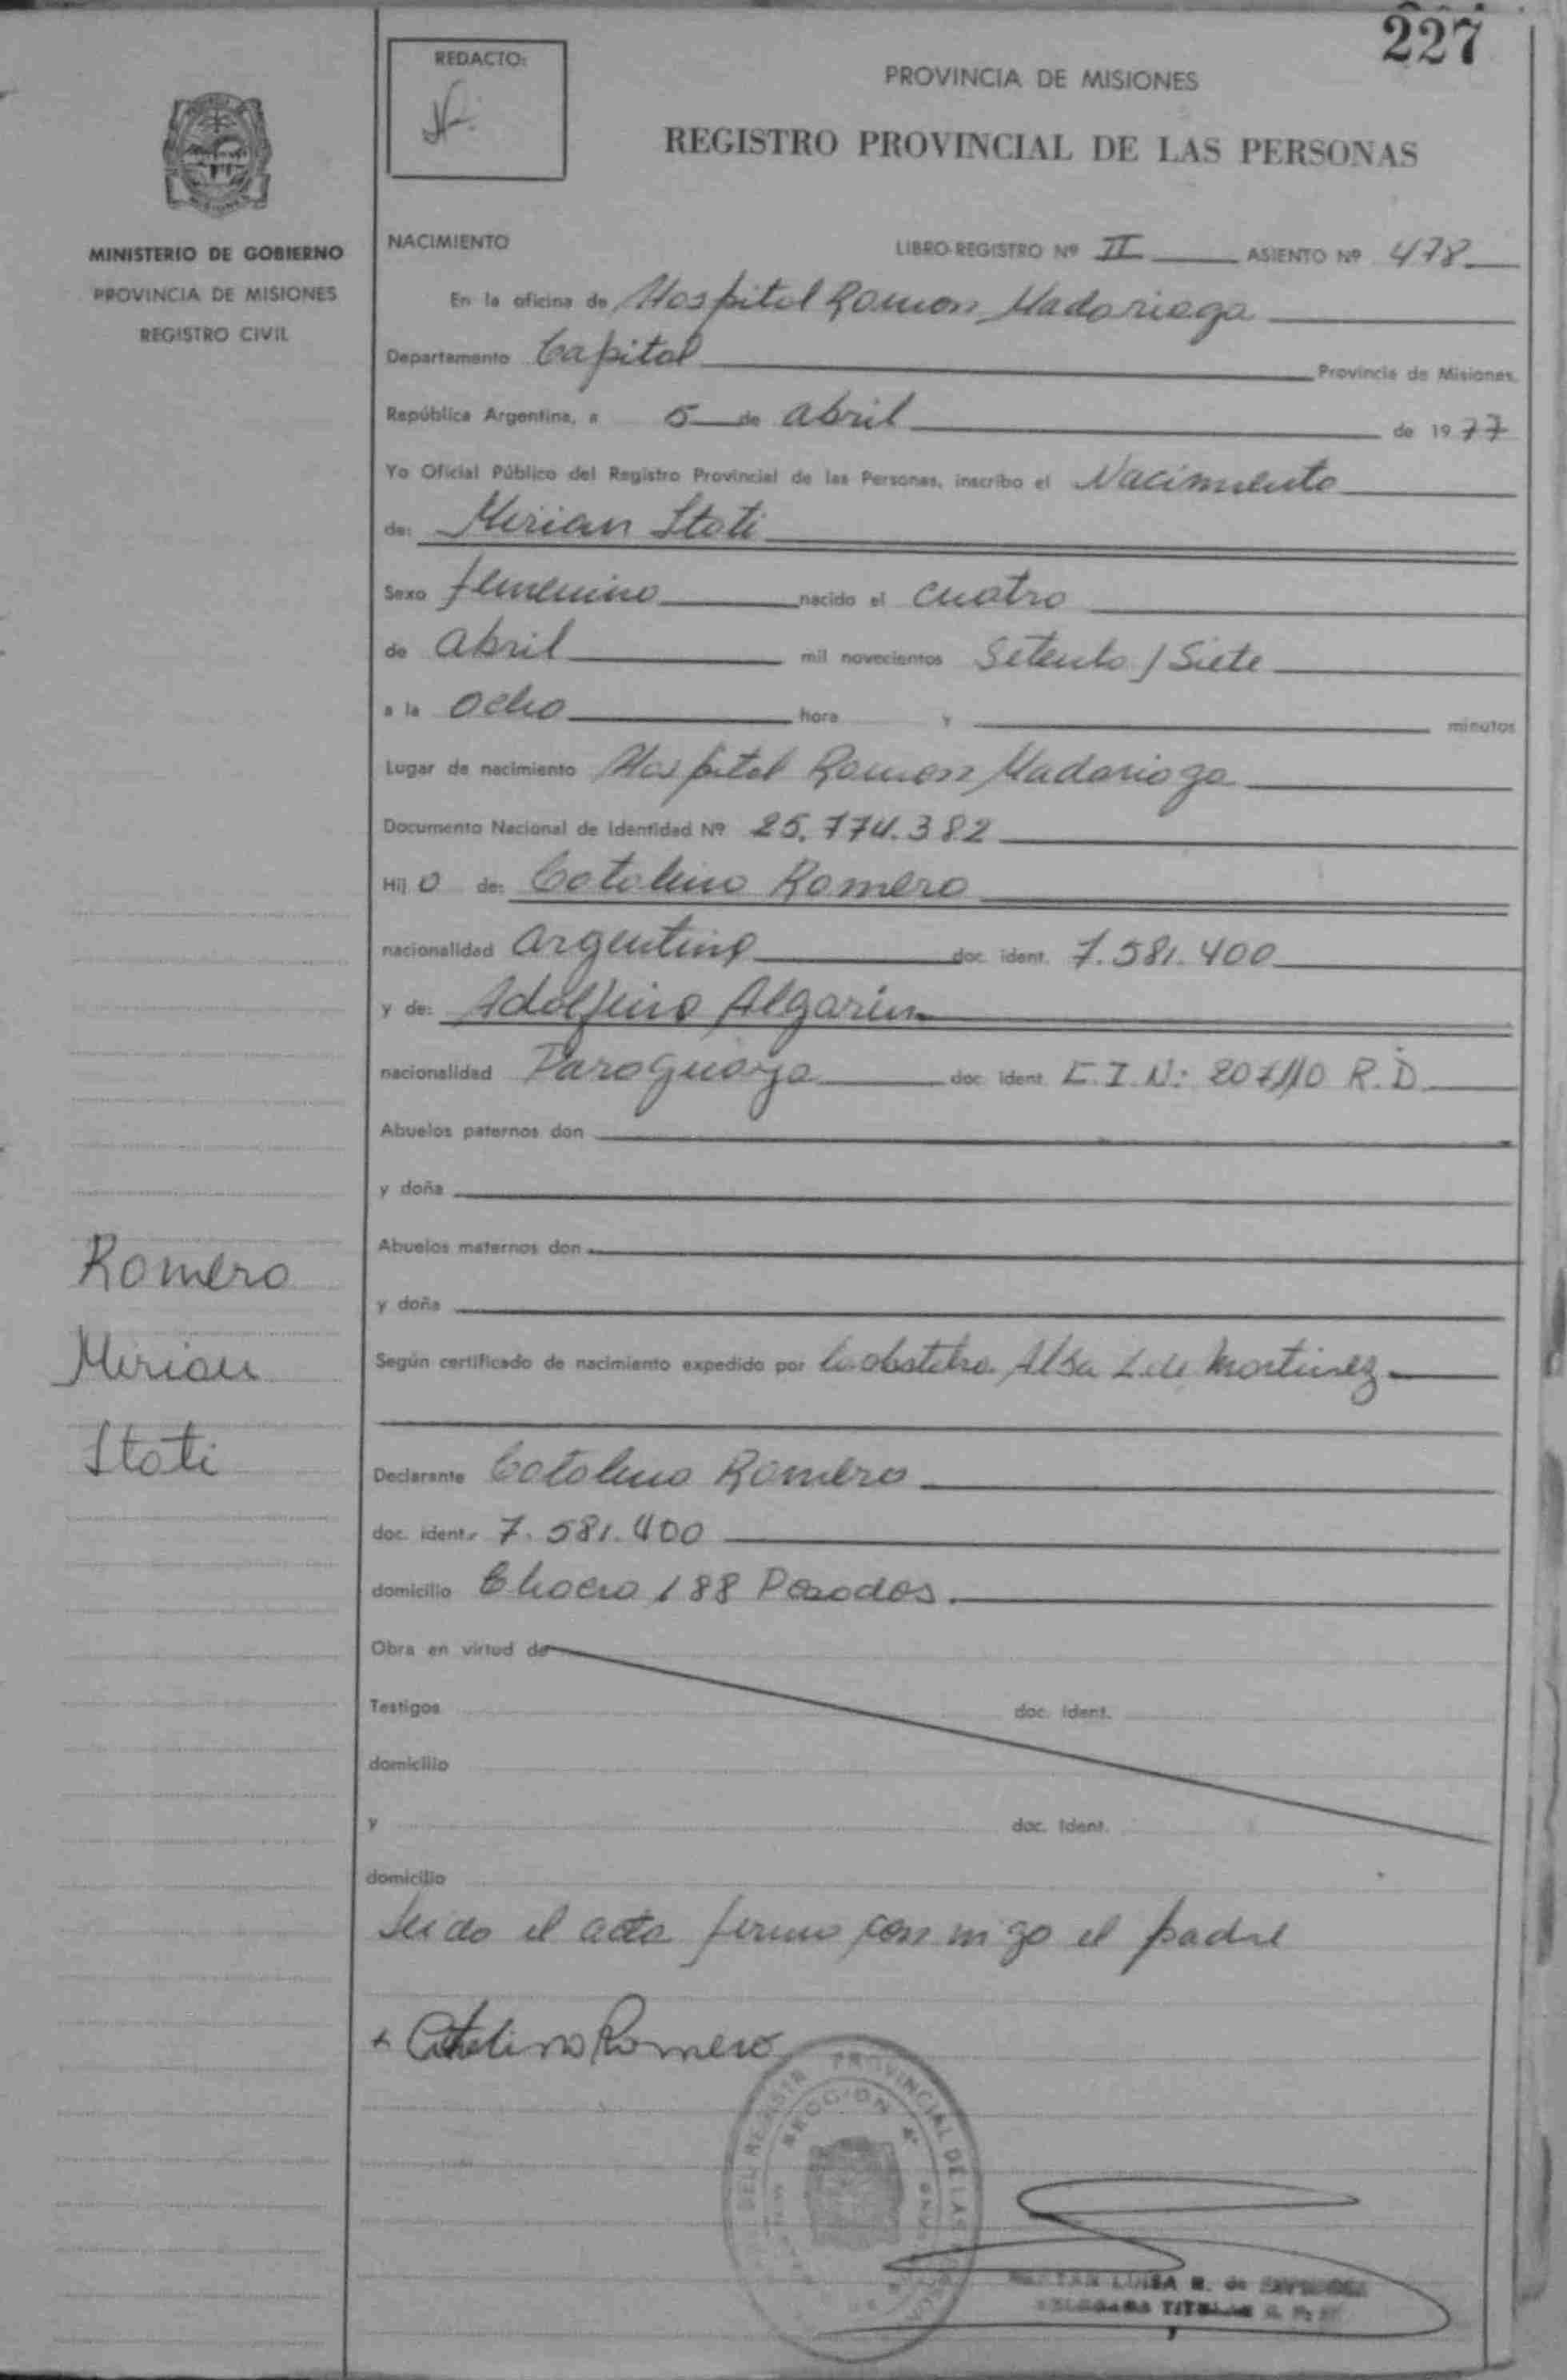 227
REDACTO:
PROVINCIA DE MISIONES
REGISTRO PROVINCIAL DE LAS PERSONAS
MINISTERIO DE GOBIERNO
PROVINCIA DE MISIONES
REGISTRO CIVIL
NACIMIENTO LIBRO-REGISTRO Nº II ASIENTO Nº 478
En la oficina de Hospital Ramon Madariaga
Departamento Capital Provincia de Misiones.
República Argentina, a 5 de abril de 1977
Yo Oficial Público del Registro Provincial de las Personas, inscribo el Nacimiento
de: Mirian Stati
Sexo femenino nacido el cuatro
de abril mil novecientos Setenta y Siete
a la ocho hora y minutos
Lugar de nacimiento Hospital Ramon Madariaga
Documento Nacional de Identidad Nº 25.774.382
Hij o de: Catalino Romero
nacionalidad argentino doc. ident. 7.581.400
y de: Adolfina Algarin
nacionalidad Paraguaya doc. ident. C.I.N: R.D
Abuelos paternos don
y doña
Abuelos maternos don
y doña
Romero
Mirian
Stati
Según certificado de nacimiento expedido por la obstetra Elsa L. de Martinez
Declarante Catalino Romero
doc. ident. 7.581.400
domicilio Chaco 188 Posadas.
Obra en virtud de
Testigos doc. ident.
domicilio
y doc. ident.
domicilio
Leido el acta firma con migo el padre
Catalino Romero
PROVINCIAL DE LAS
SECCION
LUISA R. de
TITULAR